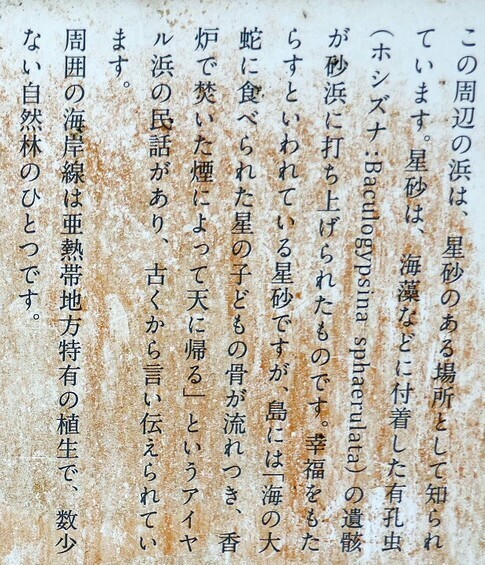 この周辺の浜は、星砂のある場所として知られ
ています。星砂は、海藻などに付着した有孔虫
（ホシズナ:Baculogypsina sphaerulata）の遺骸
が砂浜に打ち上げられたものです。幸福をもた
らすといわれている星砂ですが、島には「海の大
蛇に食べられた星の子どもの骨が流れつき、香
炉で焚いた煙によって天に帰る」というアイヤ
ル浜の民話があり、古くから言い伝えられてい
ます。
周囲の海岸線は亜熱帯地方特有の植生で、数少
ない自然林のひとつです。